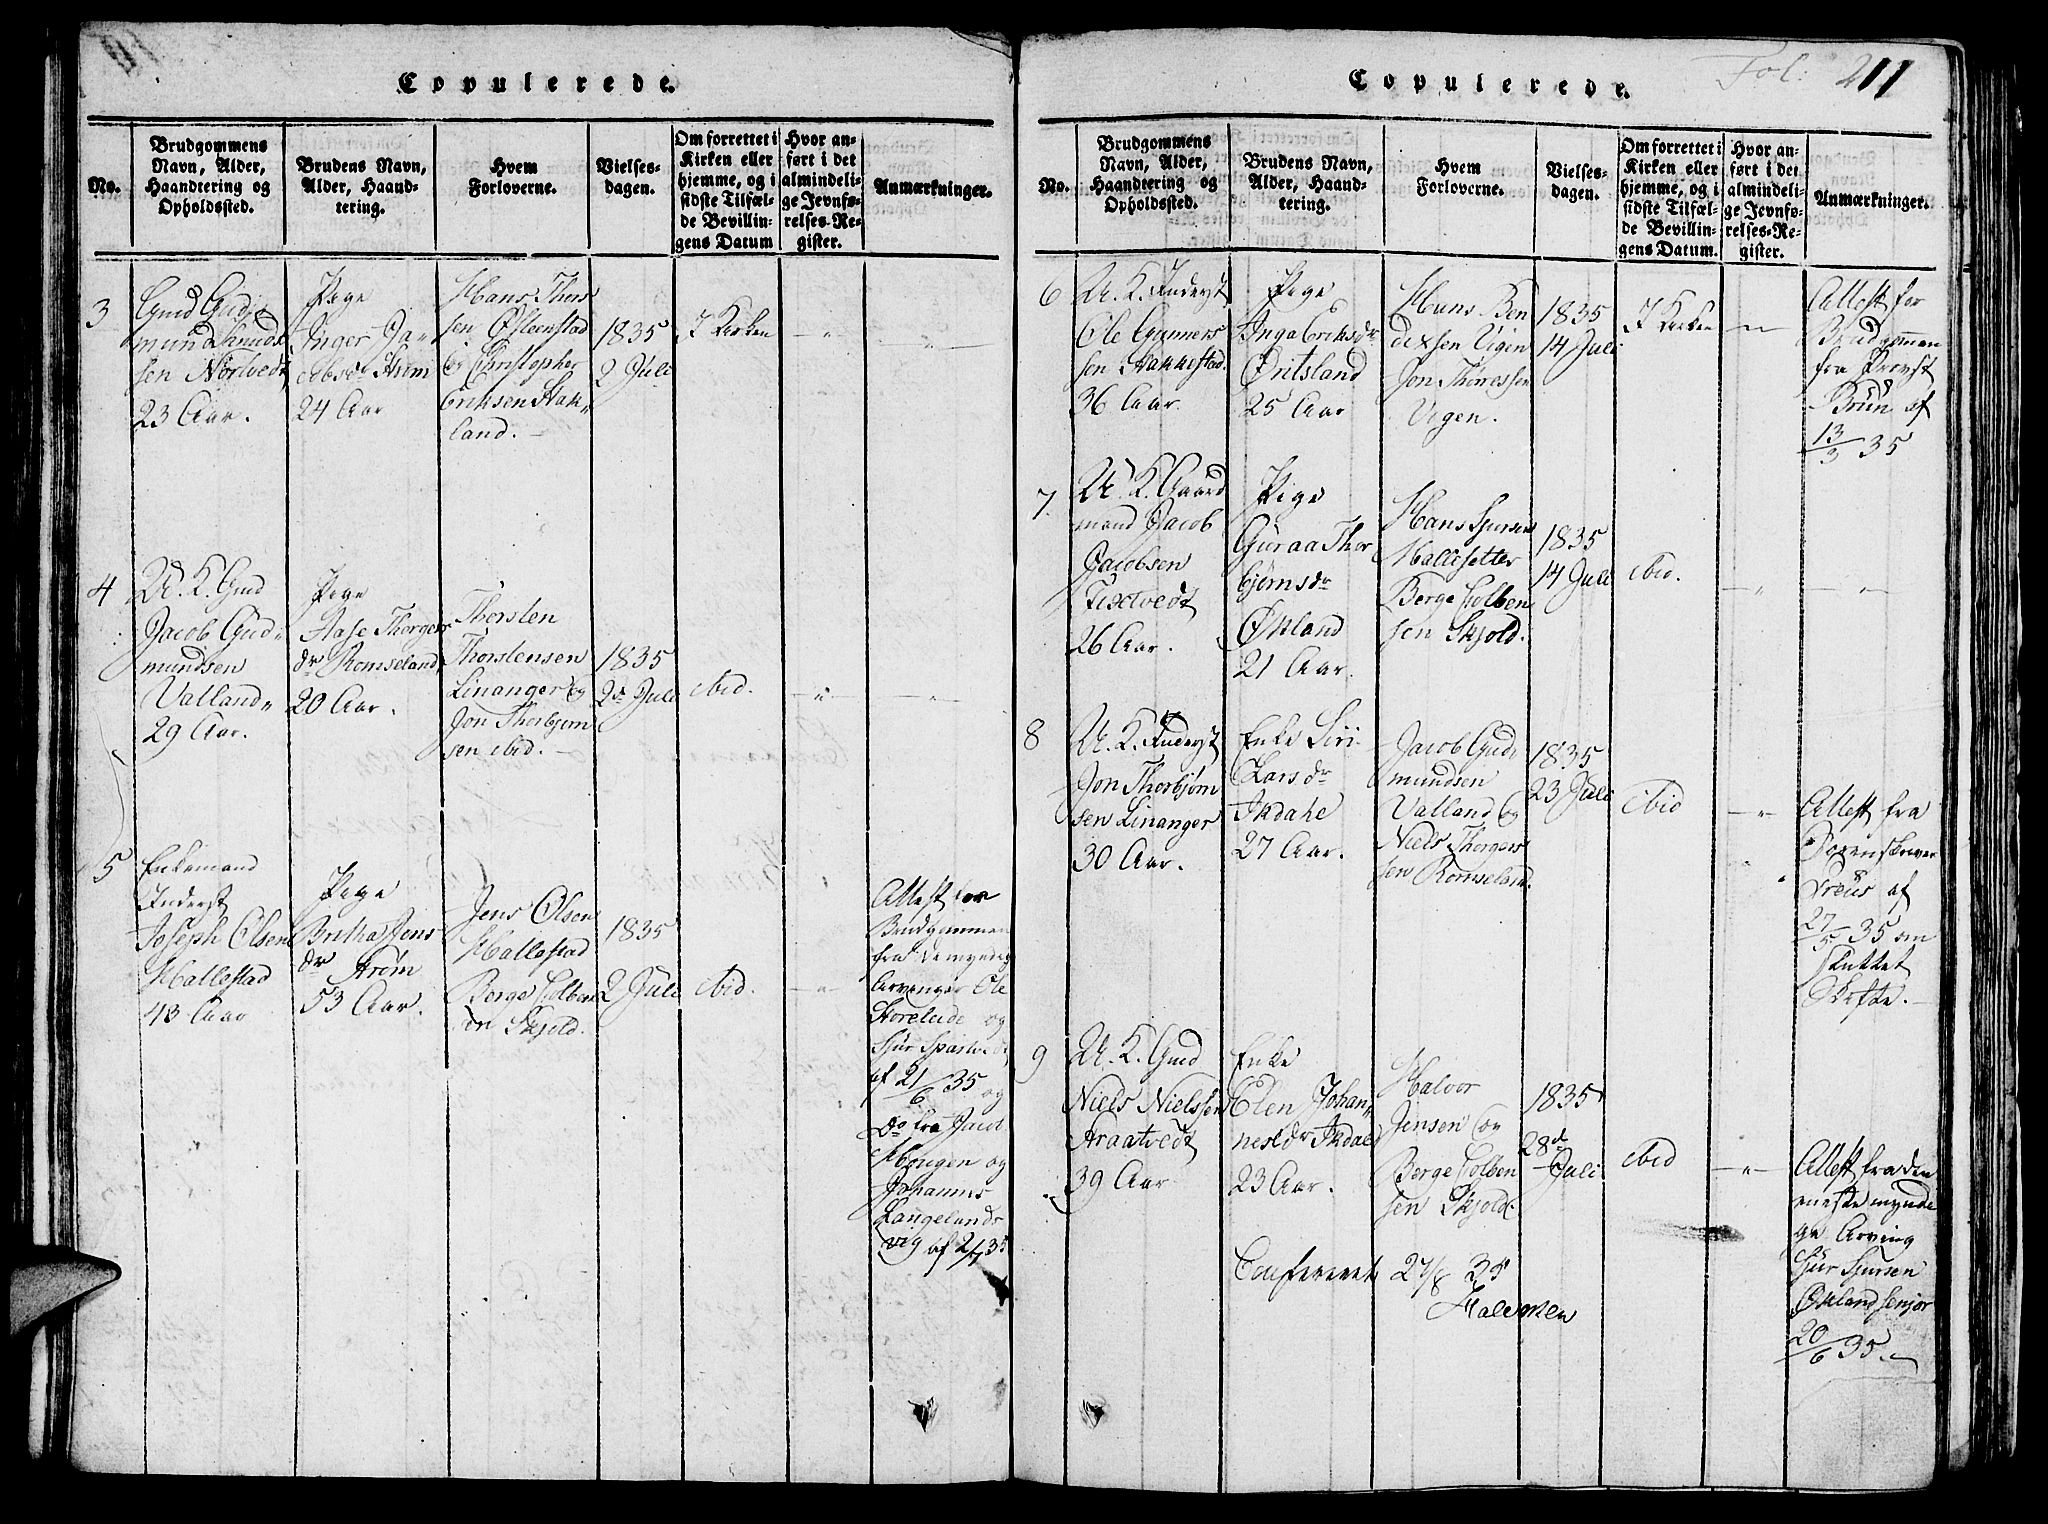 Copulerede.
No.
Brudgommens
Navn, Alder,
Haandtering og
Opholdssted.
Brudens Navn,
Alder, Haand-
tering.
Hvem
Forloverne.
Vielses-
dagen.
Om forrettet i
Kirken eller
hjemme, og i
sidste Tilfæl-
de Bevillin-
gens Datum
Hvor an-
ført i det
almindeli-
ge Jevnfø-
relses-Re-
gister.
Anmærkninger.
3
Gmd Gud
mund Knud
sen Nörtvedt
23 Aar.
Pige
Inger Ja-
cobsdr Strøm
24 Aar
Hans Thors
sen Østenstad
og Christopher
Eriksen Stak-
land.
1835
2 Juli
I Kirken
4
U. K. Gmd
Jacob Gud
mundsen
Valland
29 Aar.
Pige
Aase Thorgers
dr Romseland
20 Aar.
Thorsten
Thorstensen
Linanger og
Jon Thorbjørn
sen ibid.
1835
2d Juli
ibid.
5
Enkemand
Inderst
Joseph Olsen
Hallestad
43 Aar
Pige
Britha Jens
dr Strøm
53 Aar.
Jens Olsen
Hallestad
Berge Colben
sen Skjold.
1835
2 Juli
ibid.
Attest for
Brudgommen
fra de myndig
Arvinger Ole
og
Sjur
af 21/6 35 og
Do fra Jacob
Hougen og
Johannes
Langelands
vig af 2/7 35
Copulerede.
Fol: 211
No.
Brudgommens
Navn, Alder,
Haandtering og
Opholdssted.
Brudens Navn,
Alder, Haand-
tering.
Hvem
Forloverne.
Vielses-
dagen.
Om forrettet i
Kirken eller
hjemme, og i
sidste Tilfæl-
de Bevillin-
gens Datum.
Hvor an-
ført i det
almindeli-
ge Jevnfø-
relses-Re-
gister.
Anmærkninger.
6
U. K. Inderst
Ole Gunners
sen Stakkestad
36 Aar.
Pige
Inga Eriksdr
Øritsland
25 Aar
Hans Ben
dixsen Vigen
Jon Thoressen
Vigen.
1835
14 Juli
I Kirken
Attest for
Brudgommen
fra Provst
Brun af
13/3 35
7
U. K. Gaard
mand Jacob
Jacobsen
Tixtvedt
26 Aar.
Pige
Guraa Thor
bjørnsdr
Økland
21 Aar.
Hans Sjursen
Hallesetter
Berge Colben
sen Skjold.
1835
14 Juli
ibid.
8
U. K. Inderst
Jon Thorbjørn
sen Linanger
30 Aar.
Enke Siri
Larsdr
Ikdahl
27 Aar.
Jacob Gud
mundsen
Valland og
Niels Thorgers
sen Romseland.
1835
23 Juli
ibid
Attest fra
Sorenskriver
af
27/5 35 om
sluttet
Skifte.
9
U. K. Gmd
Niels Nielssen
Straatvedt
39 Aar
Enke
Elen Johan
nesdr Ikdal
23 Aar.
Halvor
Jensen og
Berge Colben
sen Skjold
1835
28d
Juli
ibid
Attest fra den
eneste mynde
ge Arving
Sjur Sjursen
Økland senjor
20/6 35.
Confereret 27/8 35
Halvorsen